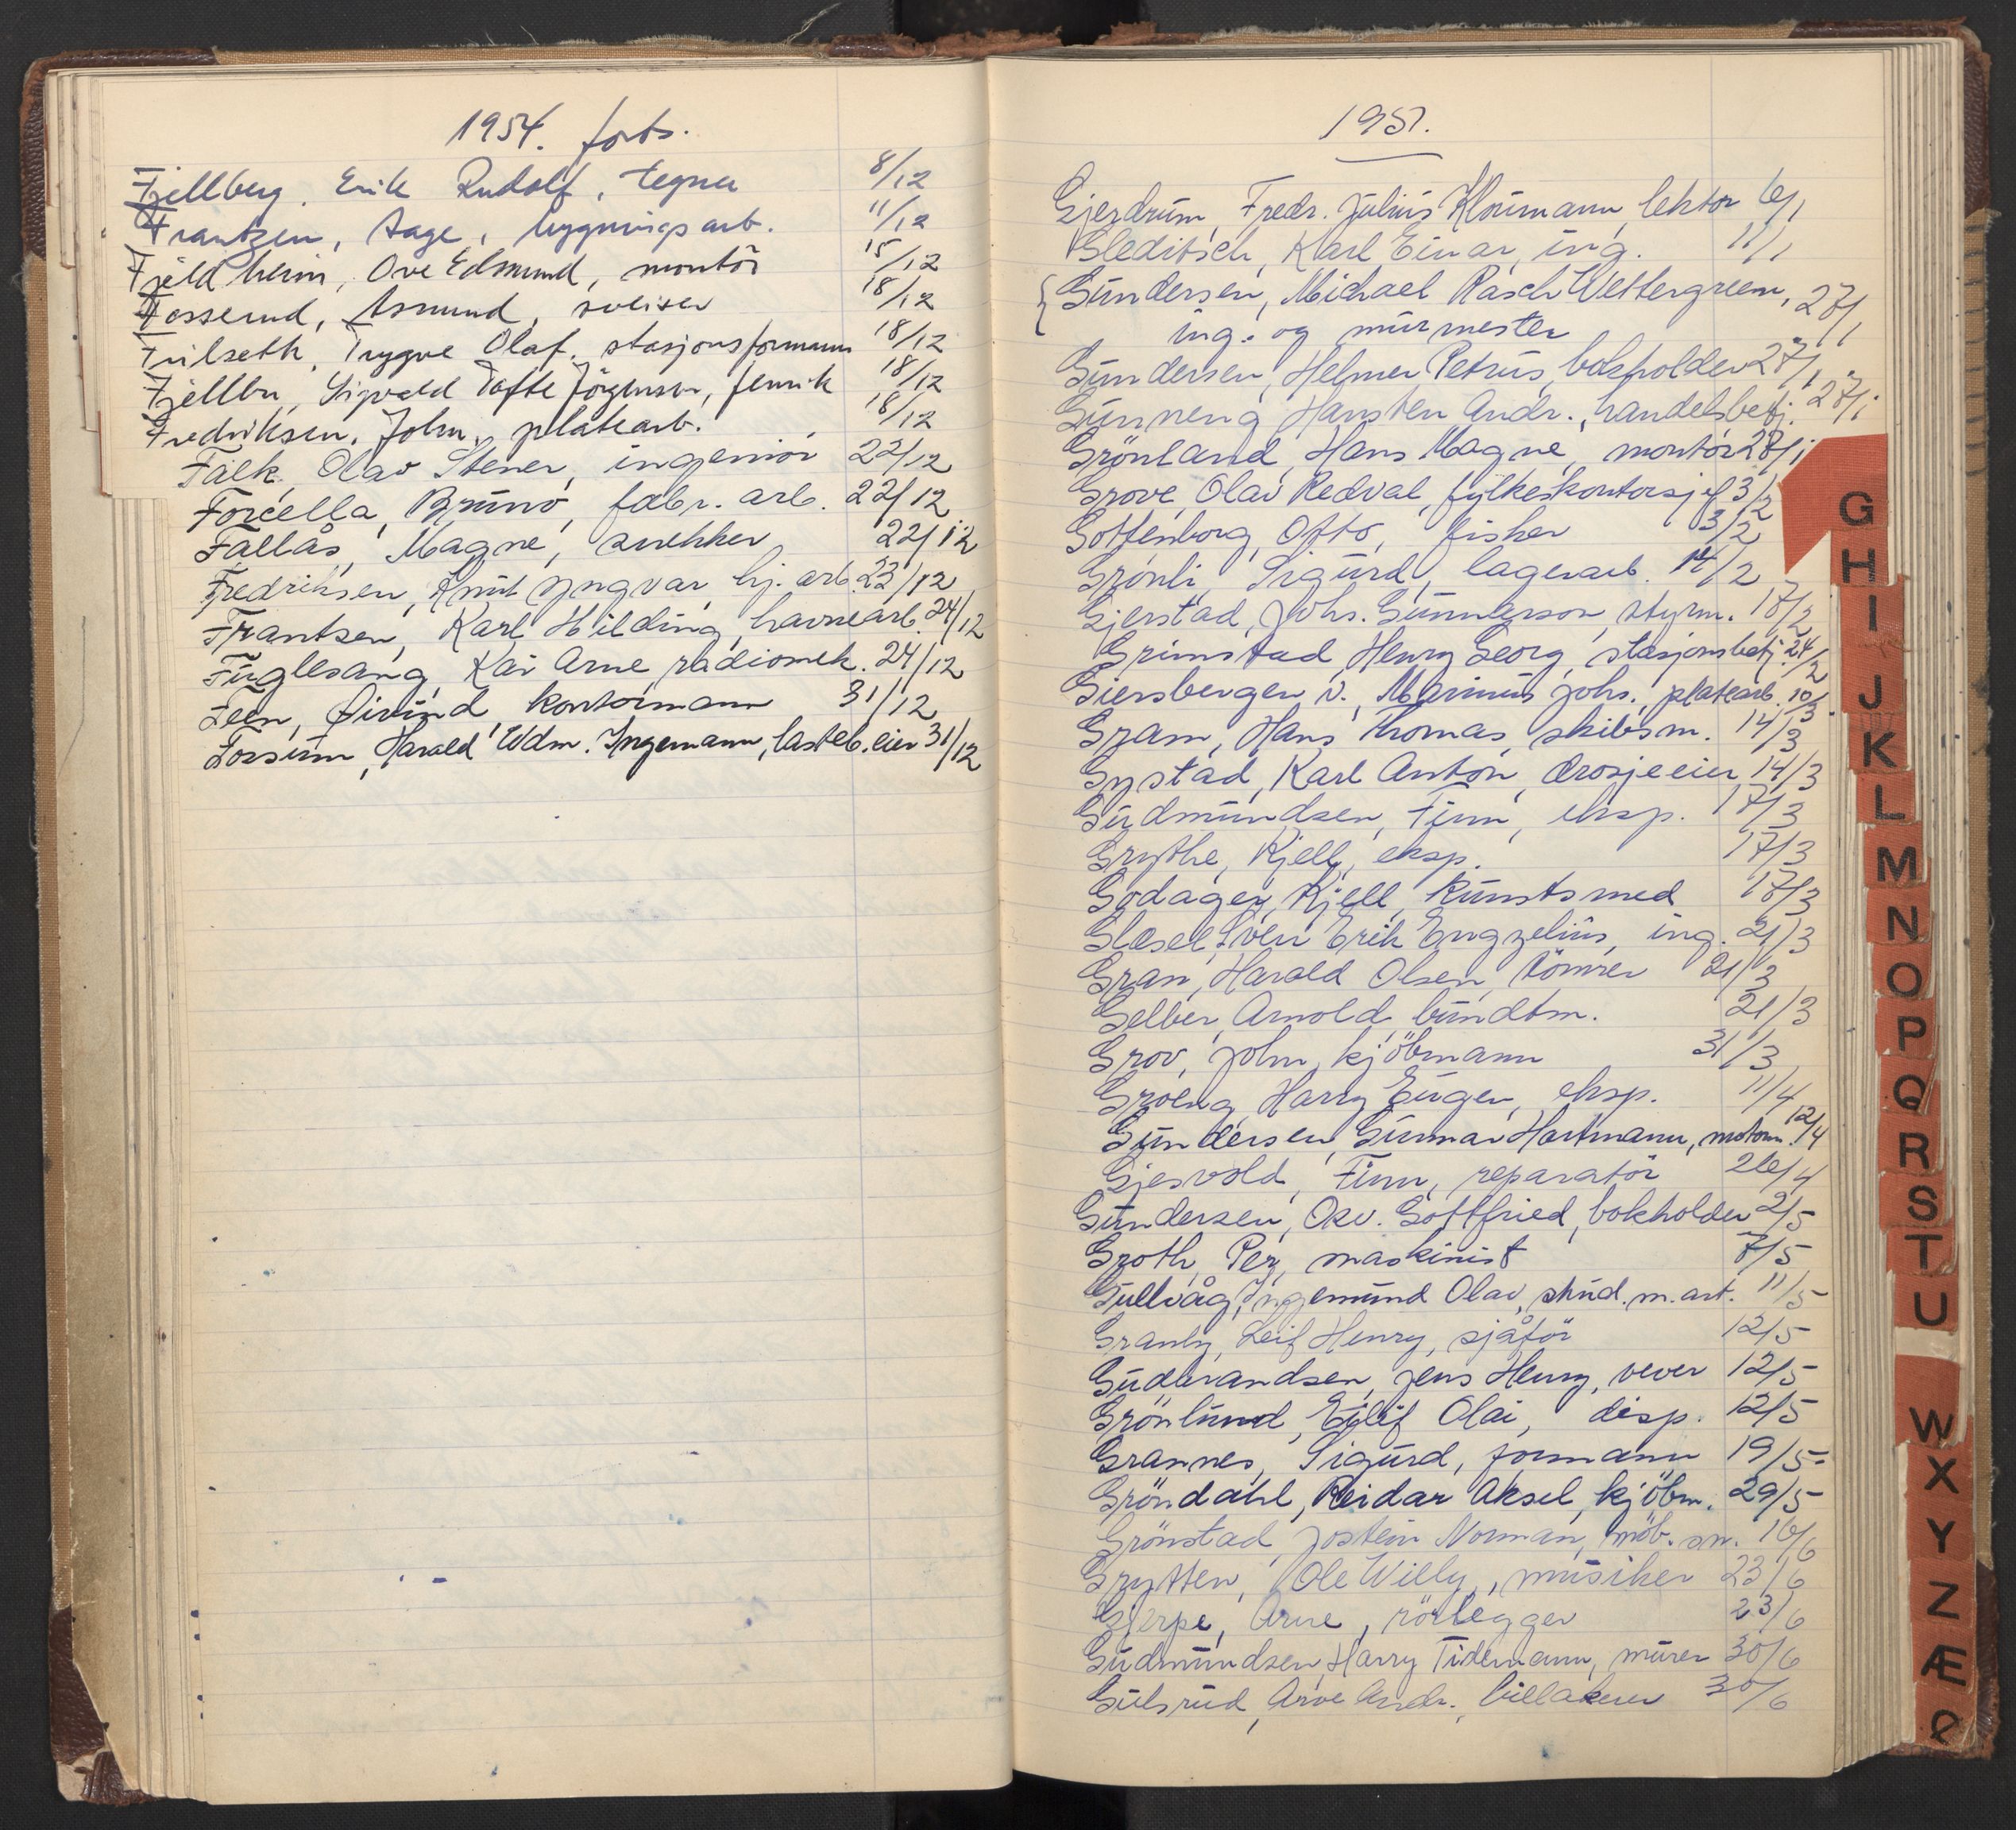 1954. forts.
Fjellberg, Erik Rudolf, tegner 8/12
Frantzen, Aage, bygningsarb. 11/12
Fjeldheim, Ove Edmund, montör 15/12
Fosserud, Asmund, 18/12
Friilseth, Trygve Olaf, stasjonsformann 18/12
Fjellbu, Sigvald Tofte Jörgensen, 18/12
Fredriksen, John, platearb. 18/12
Falk, Olav Stener, ingeniör 22/12
Forcella, Bruno, fabr. arb. 22/12
Fallås, Magne, snekker 22/12
Fredriksen, Knut Yngvar, hj. arb. 23/12
Frantsen, Karl Hilding, havnearb. 24/12
Fuglesang, Kai Arne, radiomek. 24/12
Feen, Øivind, kontormann 31/12
Forsum, Harald Wdm. Ingemann, lasteb. eier 31/12
1951.
Gjerdrum, Fredr. Julius Kloumann, lektor 6/1
Gleditsch, Karl Einar, ing. 11/1
Gundersen, Michael Rasch Wettergreen, 27/1
ing. og murmester
Gundersen, Helmer Petrus, bokholder 27/1
Gunneng, Hans Andr., handelsbetj. 27/1
Grönland, Hans Magne, montör 28/1
Grove, Olav Redval, fylkeskontorsjef 3/2
Gottenborg, Otto, fisker 3/2
Grönli, Sigurd, lagerarb. 14/2
Gjerstad, Johs. Gunnarson, styrm. 17/2
Grimstad, Henry Georg, stasjonsbetj. 24/2
Giersbergen v., Marinus Johs., platearb. 10/3
Gram, Hans Thomas, skibsm. 14/3
Gystad, Karl Anton, drosjeeier 14/3
Gudmundsen, Finn, eksp. 17/3
Grythe, Kjell, eksp. 17/3
Godager, Kjell, kunstsmed 17/3
Glæsel, Sven Erik Engzelius, ing. 21/3
Gran, Harald Olsen, tömrer 21/3
Gelber, Arnold, bundtm. 21/3
Grov, John, kjöbmann 31/3
Groeng, Harry Eugen, eksp. 11/4
Gundersen, Gunnar Hartmann, motorm. 12/4
Gjesvold, Finn, reparatör 26/4
Gundersen, Osv. Gottfried, bokholder 2/5
Groth, Per, maskinist 7/5
Gullvåg, Ingemund Olav, stud. m. art. 11/5
Granly, Leif Henry, sjåför 12/5
Gudbrandsen, Jens Henry, vever 12/5
Grönlund, Eilif Olai, disp. 12/5
Grannes, Sigurd, formann 19/5
Gröndahl, Reidar Aksel, kjöbm. 29/5
Grönstad, Jostein Norman, möb. sn. 16/6
Grytten, Ole Willy, musiker 23/6
Gjerpe, Arne, rörlegger 23/6
Gudmundsen, Harry Tidemann, murer 30/6
Gulsrud, Arve Andr., billakerer 30/6
G
H
I
J
K
L
M
N
O
P
Q
R
S
T
U
W
X
Y
Z
Æ